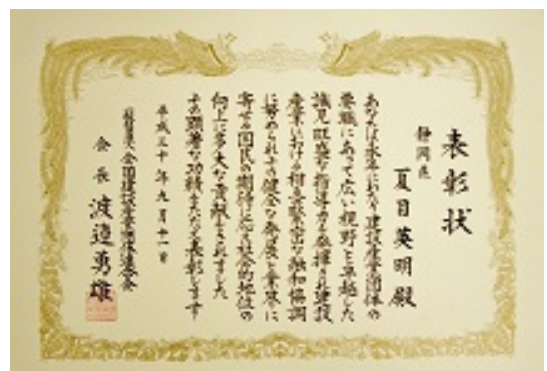 表彰状
静岡県
夏目英明殿
あなたは永年にわたり建設産業団体の
要職にあって広い視野と卓越した
識見旺盛な指導力を発揮され建設
産業における相互緊密な融和協調
に努められその健全な発展と業界に
寄せる国民の期待に応え社会的地位の
向上に多大な貢献をされました
その顕著な功績をたたえ表彰します
平成三十年九月十一日
一般社団法人全国建設産業団体連合会
会長 渡邉勇雄